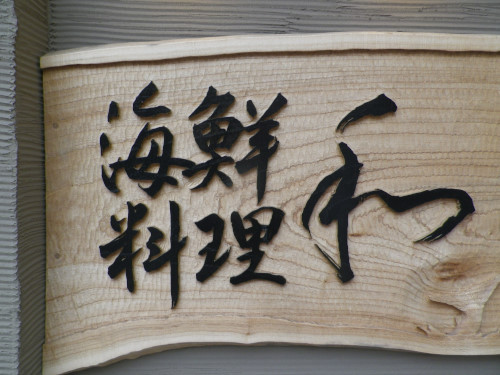 海鮮
料理
和